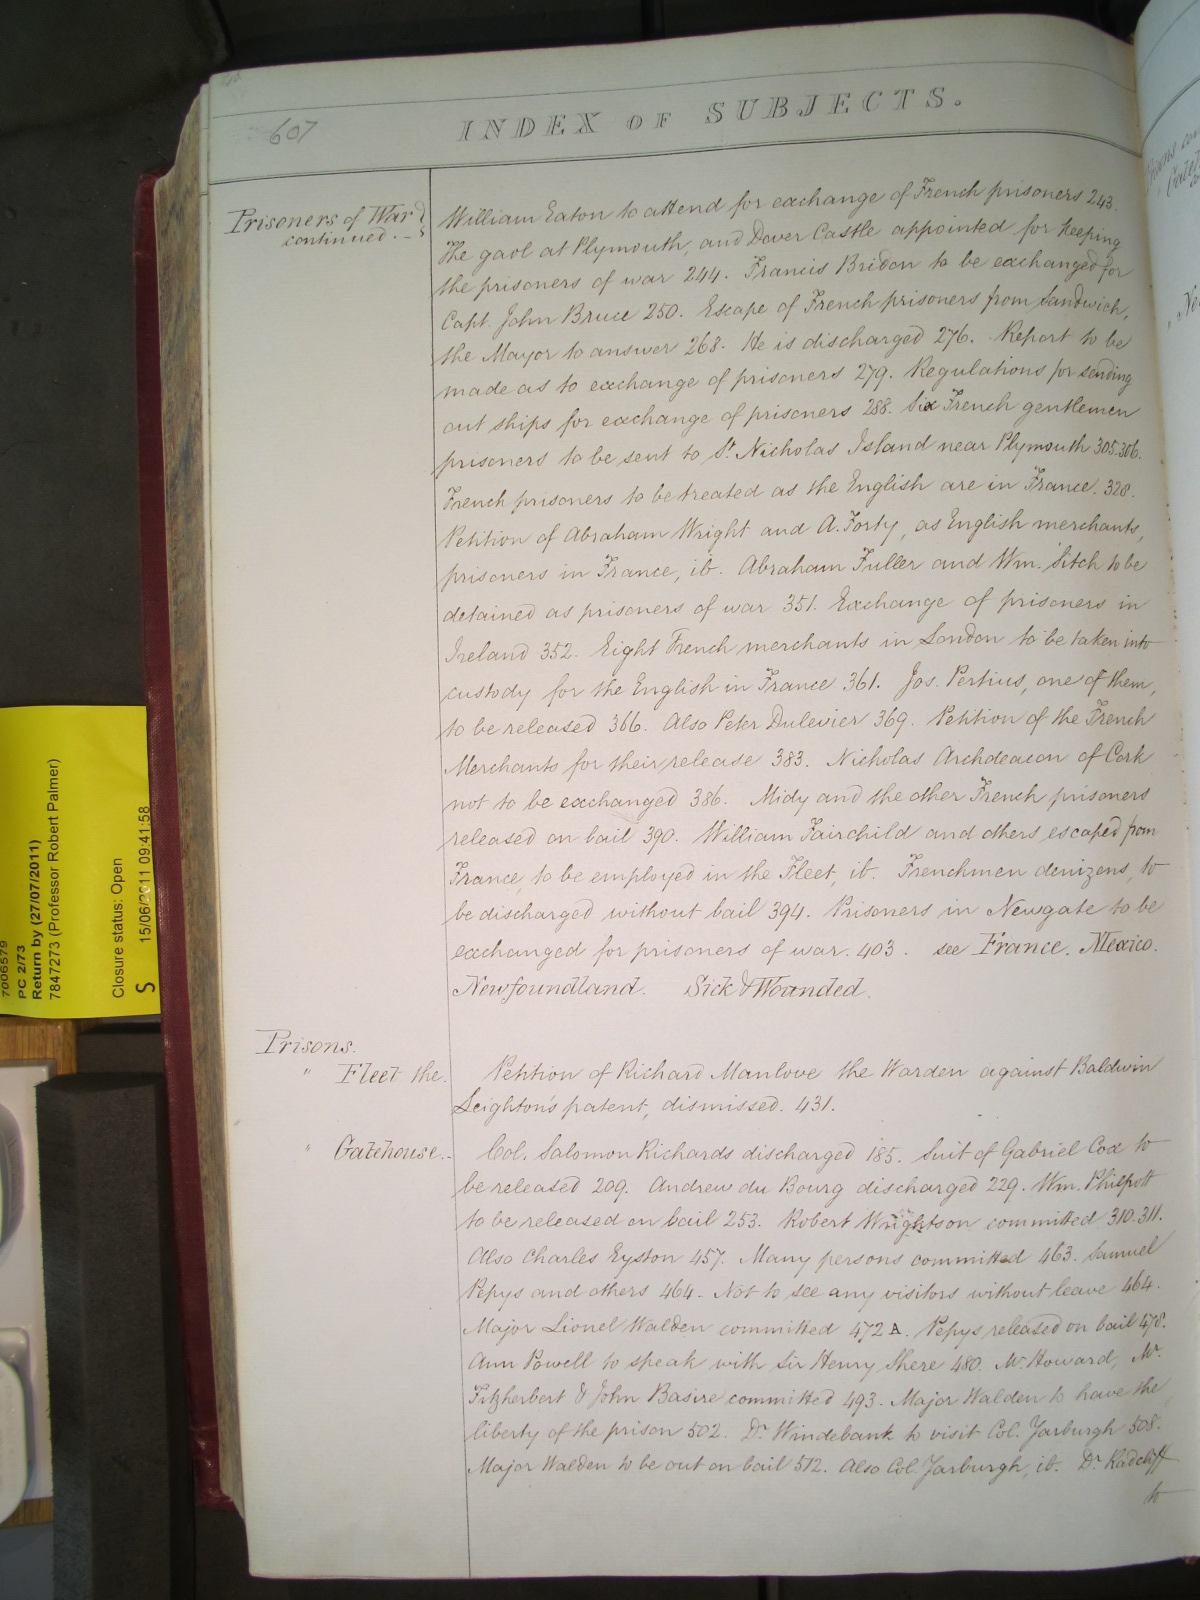 607
INDEX OF SUBJECTS.
Prisoners of War
continued. -
William Eaton to attend for exchange of French prisoners 243.
The gaol at Plymouth, and Dover Castle appointed for keeping
the prisoners of war 244. Francis Bridon to be exchanged for
Capt. John Bruce 250. Escape of French prisoners from Sandwich,
the Mayor to answer 268. He is discharged 276. Report to be
made as to exchange of prisoners 279. Regulations for sending
out ships for exchange of prisoners 288. Six French gentlemen
prisoners to be sent to St. Nicholas Island near Plymouth 305.306.
French prisoners to be treated as the English are in France. 328.
Petition of Abraham Wright and A. Forty, as English merchants,
prisoners in France, ib. Abraham Fuller and Wm. Sitch to be
detained as prisoners of war 351. Exchange of prisoners in
Ireland 352. Eight French merchants in London to be taken into
custody for the English in France 361. Jos. Pertius, one of them,
to be released 366. Also Peter Dulevier 369. Petition of the French
Merchants for their release 383. Nicholas Archdeacon of Cork
not to be exchanged 386. Midy and the other French prisoners
released on bail 390. William Fairchild and others escaped from
France, to be employed in the Fleet, ib. Frenchmen denizens, to
be discharged without bail 394. Prisoners in Newgate to be
exchanged for prisoners of war. 403. see France. Mexico.
Newfoundland. Sick & Wounded.
Prisons.
" Fleet the.
Petition of Richard Manlove the Warden against Baldwin
Leighton's patent, dismissed. 431.
" Gatehouse..
Col. Salomon Richards discharged 185. Suit of Gabriel Cox to
be released 209. Andrew du Bourg discharged 229. Wm. Philpott
to be released on bail 253. Robert Wrightson committed 310.311.
Also Charles Eyston 457. Many persons committed 463. Samuel
Pepys and others 464. Not to see any visitors without leave 464.
Major Lionel Walden committed 472 A. Pepys released on bail 478.
Ann Powell to speak with Sir Henry Shere 480. Mr. Howard, Mr.
Fitzherbert & John Basire committed 493. Major Walden to have the
liberty of the prison 502. Dr. Windebank to visit Col. Yarburgh 508.
Major Walden to be out on bail 512. Also Col. Yarburgh, ib. Dr. Radcliff
to
7006579
PC 2/73
Return by (27/07/2011)
7847273 (Professor Robert Palmer)
Closure status: Open
S 15/06/2011 09:41:58